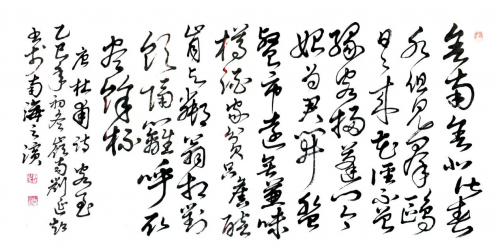 舍南舍北皆春
水但見羣鷗
日日來花徑不曾
緣客掃蓬門今
始為君開盤
飧市遠無兼味
樽酒家貧只舊醅
肯與鄰翁相對
飲隔籬呼取
盡餘杯
唐杜甫詩客至
乙巳年初冬嶺南劉延
書於南海之濱